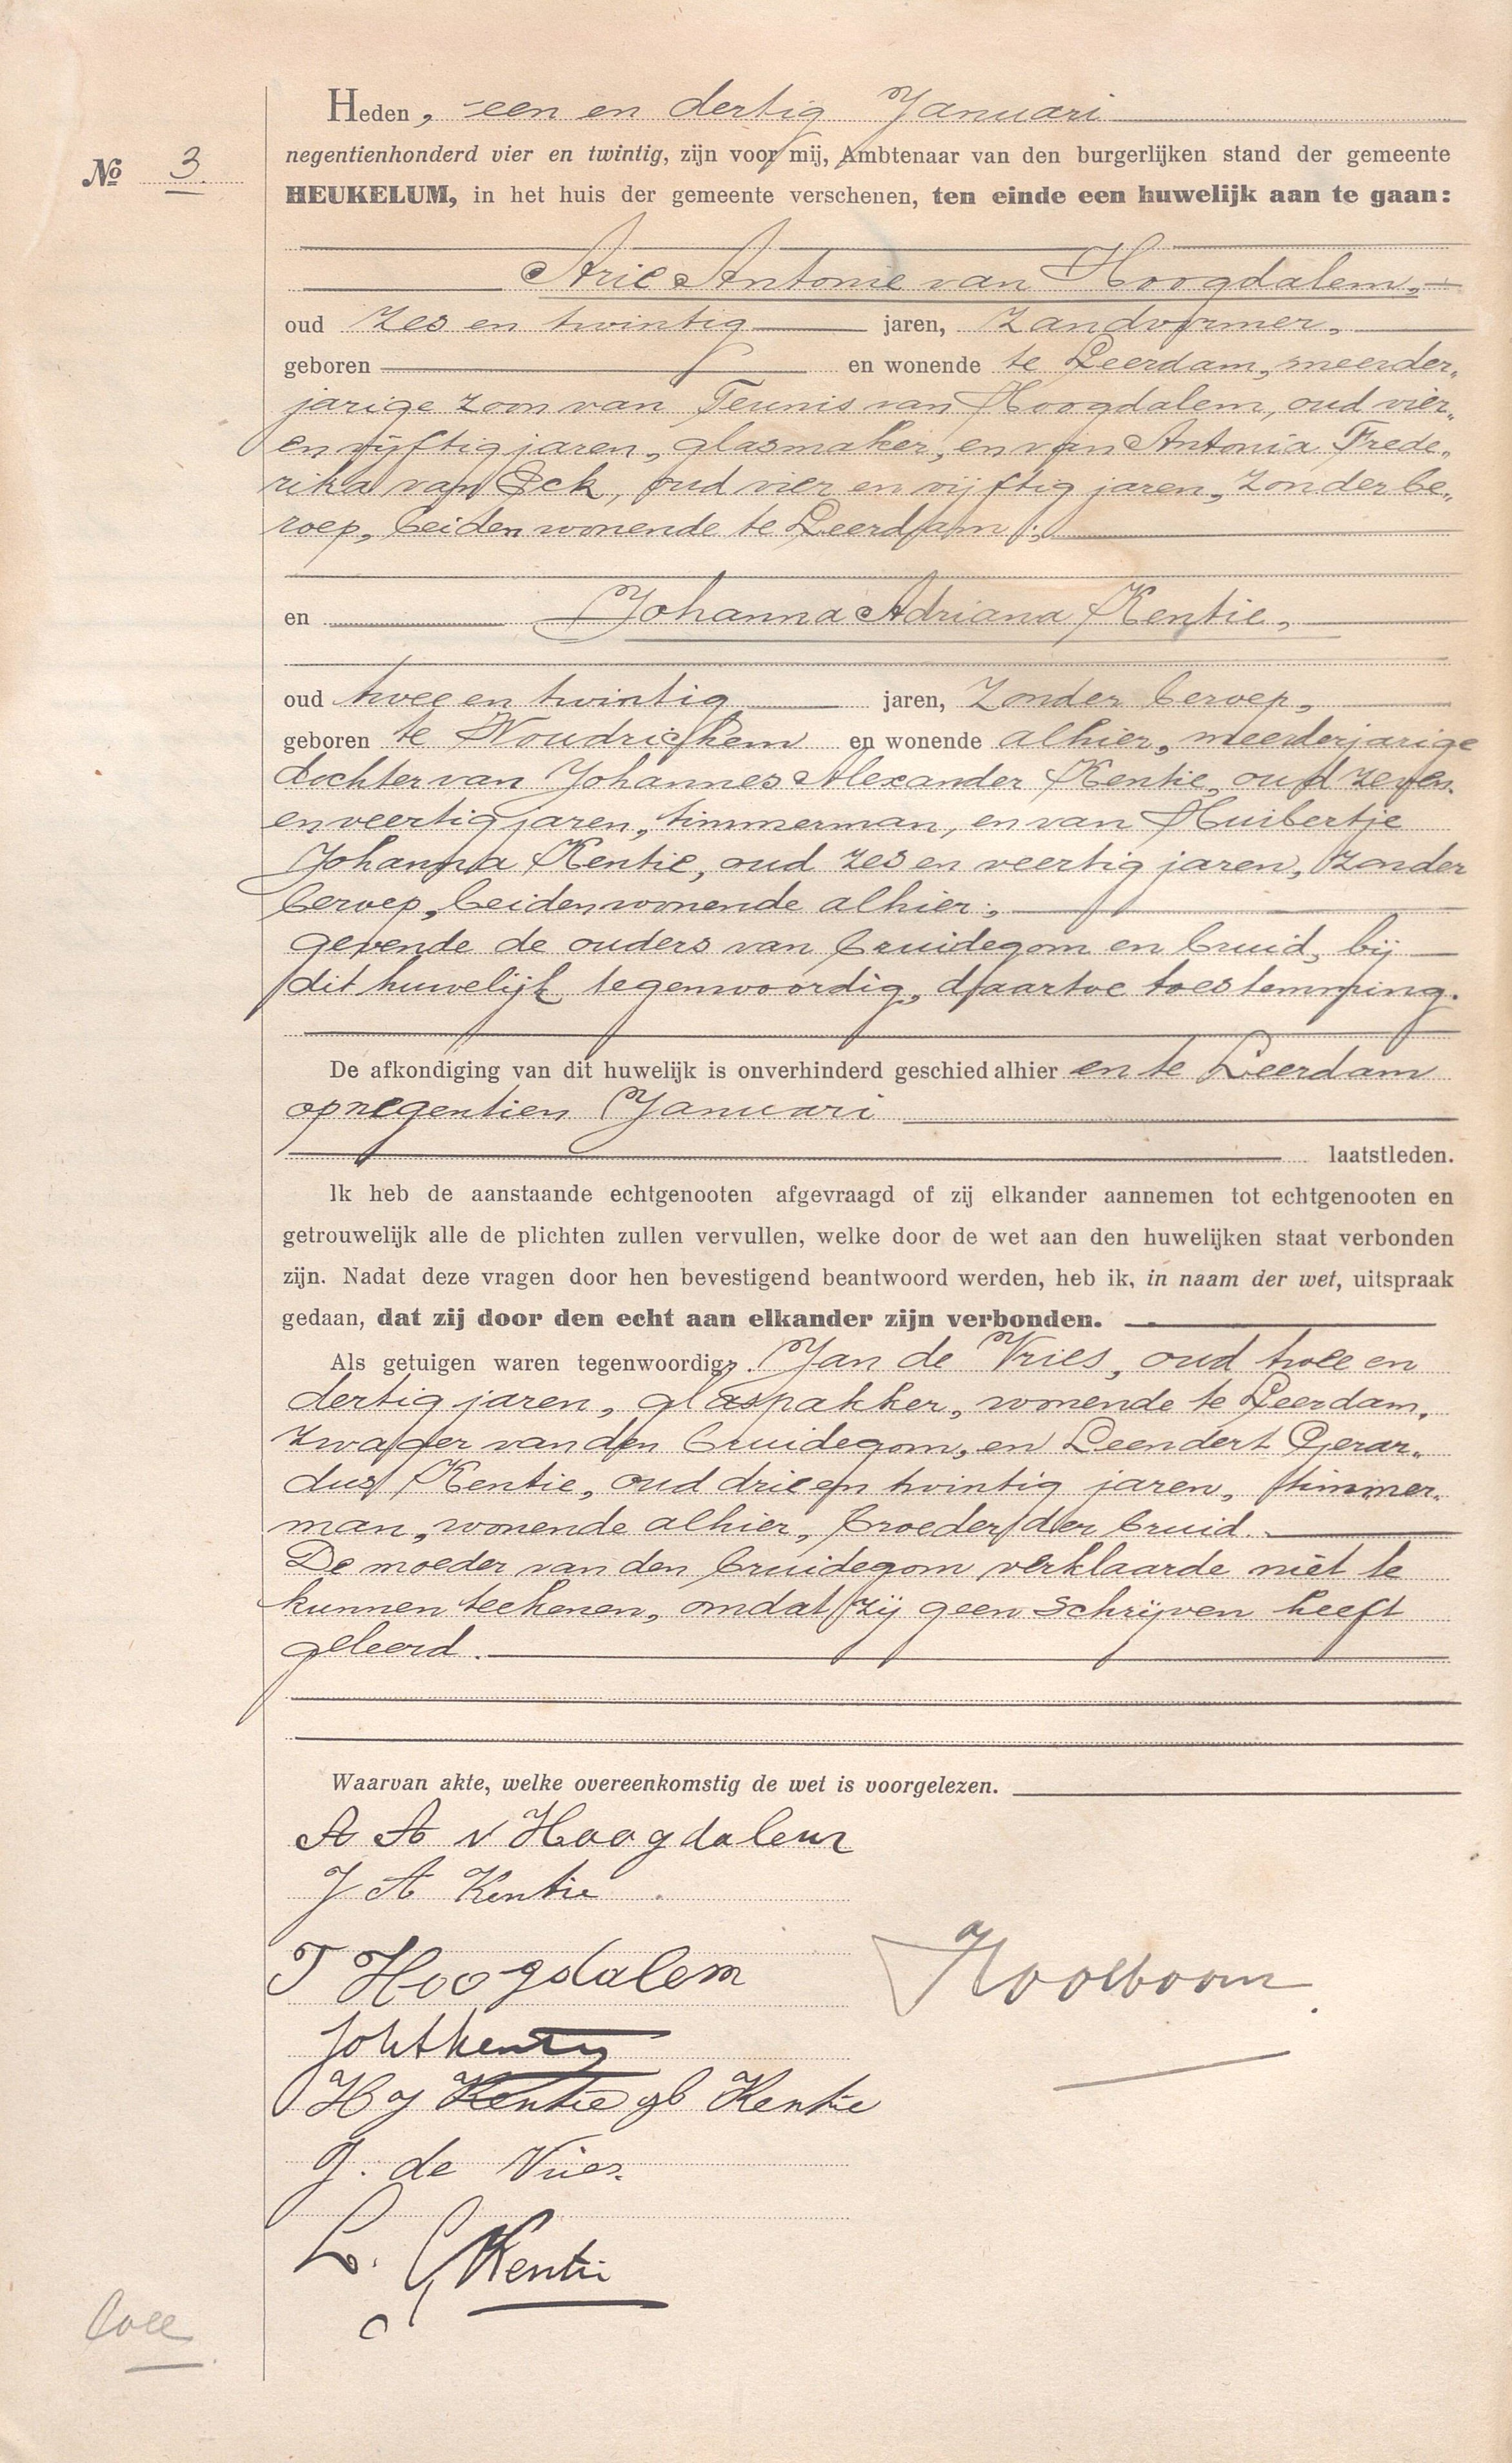 Heden, een en dertig Januari
negentienhonderd vier en twintig, zijn voor mij, Ambtenaar van den burgerlijken stand der gemeente
No 3.
HEUKELUM, in het huis der gemeente verschenen, ten einde een huwelijk aan te gaan:
Arie Antonie van Hoogdalem,
oud zes en twintig jaren, zandvormer,
geboren en wonende te Leerdam, meerder„
jarige zoon van Teunis van Hoogdalem, oud vier„
en vijftig jaren, glasmaker, en van Antonia Frede„
rika van Eck, oud vier en vijftig jaren, zonder be„
roep, beiden wonende te Leerdam;
en Johanna Adriana Kentie,
oud twee en twintig jaren, zonder beroep,
geboren te Woudrichem en wonende alhier, meerderjarige
dochter van Johannes Alexander Kentie, oud zeven
en veertig jaren, timmerman, en van Huibertje
Johanna Kentie, oud zes en veertig jaren, zonder
beroep, beiden wonende alhier;
gevende de ouders van bruidegom en bruid, bij
dit huwelijk tegenwoordig, daartoe toestemming.
De afkondiging van dit huwelijk is onverhinderd geschied alhier en te Leerdam
op negentien Januari
laatstleden.
Ik heb de aanstaande echtgenooten afgevraagd of zij elkander aannemen tot echtgenooten en
getrouwelijk alle de plichten zullen vervullen, welke door de wet aan den huwelijken staat verbonden
zijn. Nadat deze vragen door hen bevestigend beantwoord werden, heb ik, in naam der wet, uitspraak
gedaan, dat zij door den echt aan elkander zijn verbonden.
Als getuigen waren tegenwoordig: Jan de Vries, oud twee en
dertig jaren, glaspakker, wonende te Leerdam,
zwager van den bruidegom, en Leendert Gerar„
dus Kentie, oud drie en twintig jaren, timmer„
man, wonende alhier, broeder der bruid.
De moeder van den bruidegom verklaarde niet te
kunnen teekenen, omdat zij geen schrijven heeft
geleerd.
Waarvan akte, welke overeenkomstig de wet is voorgelezen.
A A v Hoogdalem
J A Kentie
T Hoogdalem
Kooiboom
Joh A Kentie
H J Kentie gb Kentie
J. de Vries
L. G Kentie